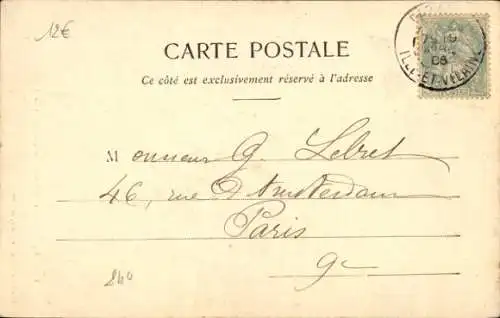 12€
CARTE POSTALE
Ce côté est exclusivement réservé à l'adresse
Monsieur G. Lebret
46, rue d'Amsterdam
Paris
9e
ILLE-ET-VILAINE
06